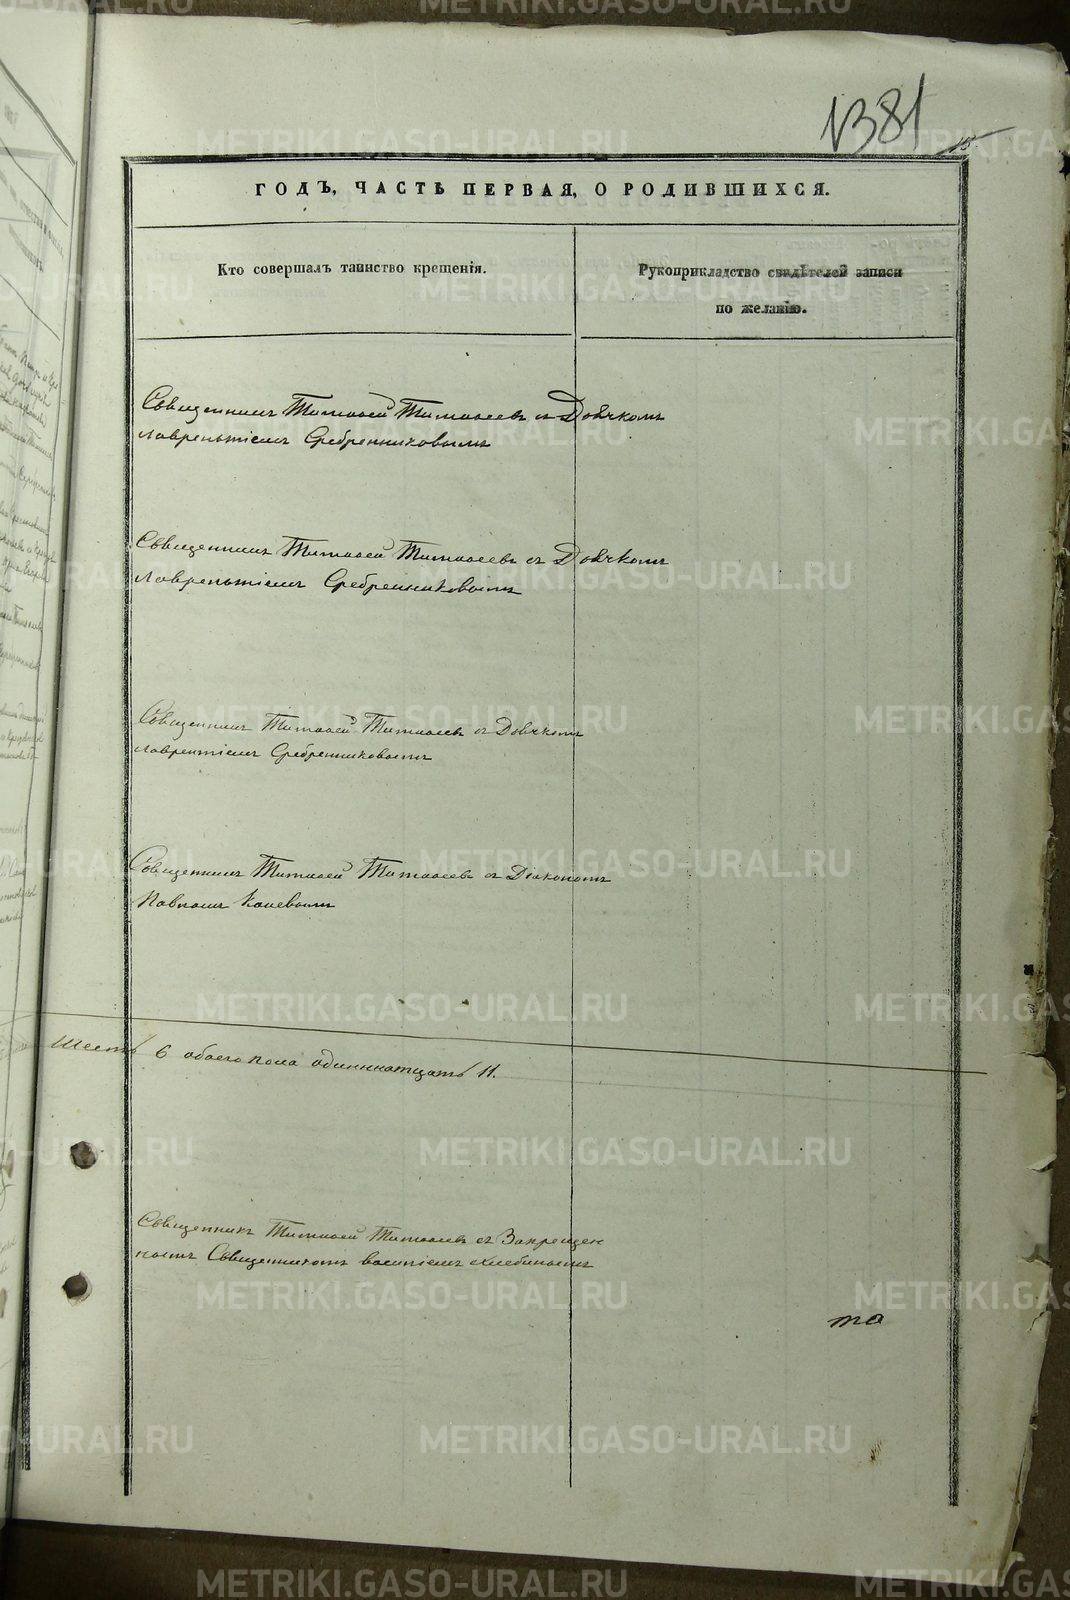 1381
15.
ГОДЪ, ЧАСТЬ ПЕРВАЯ, О РОДИВШИХСЯ.
Кто совершалъ таинство крещенія.
Рукоприкладство свидѣтелей записи
по желанію.
Священникъ Тимоѳей Тимоѳеевъ съ Дьячкомъ
Лаврентьіемъ Сребренниковымъ
Священникъ Тимоѳей Тимоѳеевъ съ Дьячкомъ
Лаврентьіемъ Сребренниковымъ
Священникъ Тимоѳей Тимоѳеевъ съ Дьячкомъ
Лаврентіемъ Сребренниковымъ
Священникъ Тимоѳей Тимоѳеевъ съ Діакономъ
Павломъ
Шесть 6 обоего пола одиннатцать 11.
Священникъ Тимоѳей Тимоѳеевъ съ Запрещен
нымъ Священникомъ Василіемъ Хлебинымъ
та
METRIKI.GASO-URAL.RU